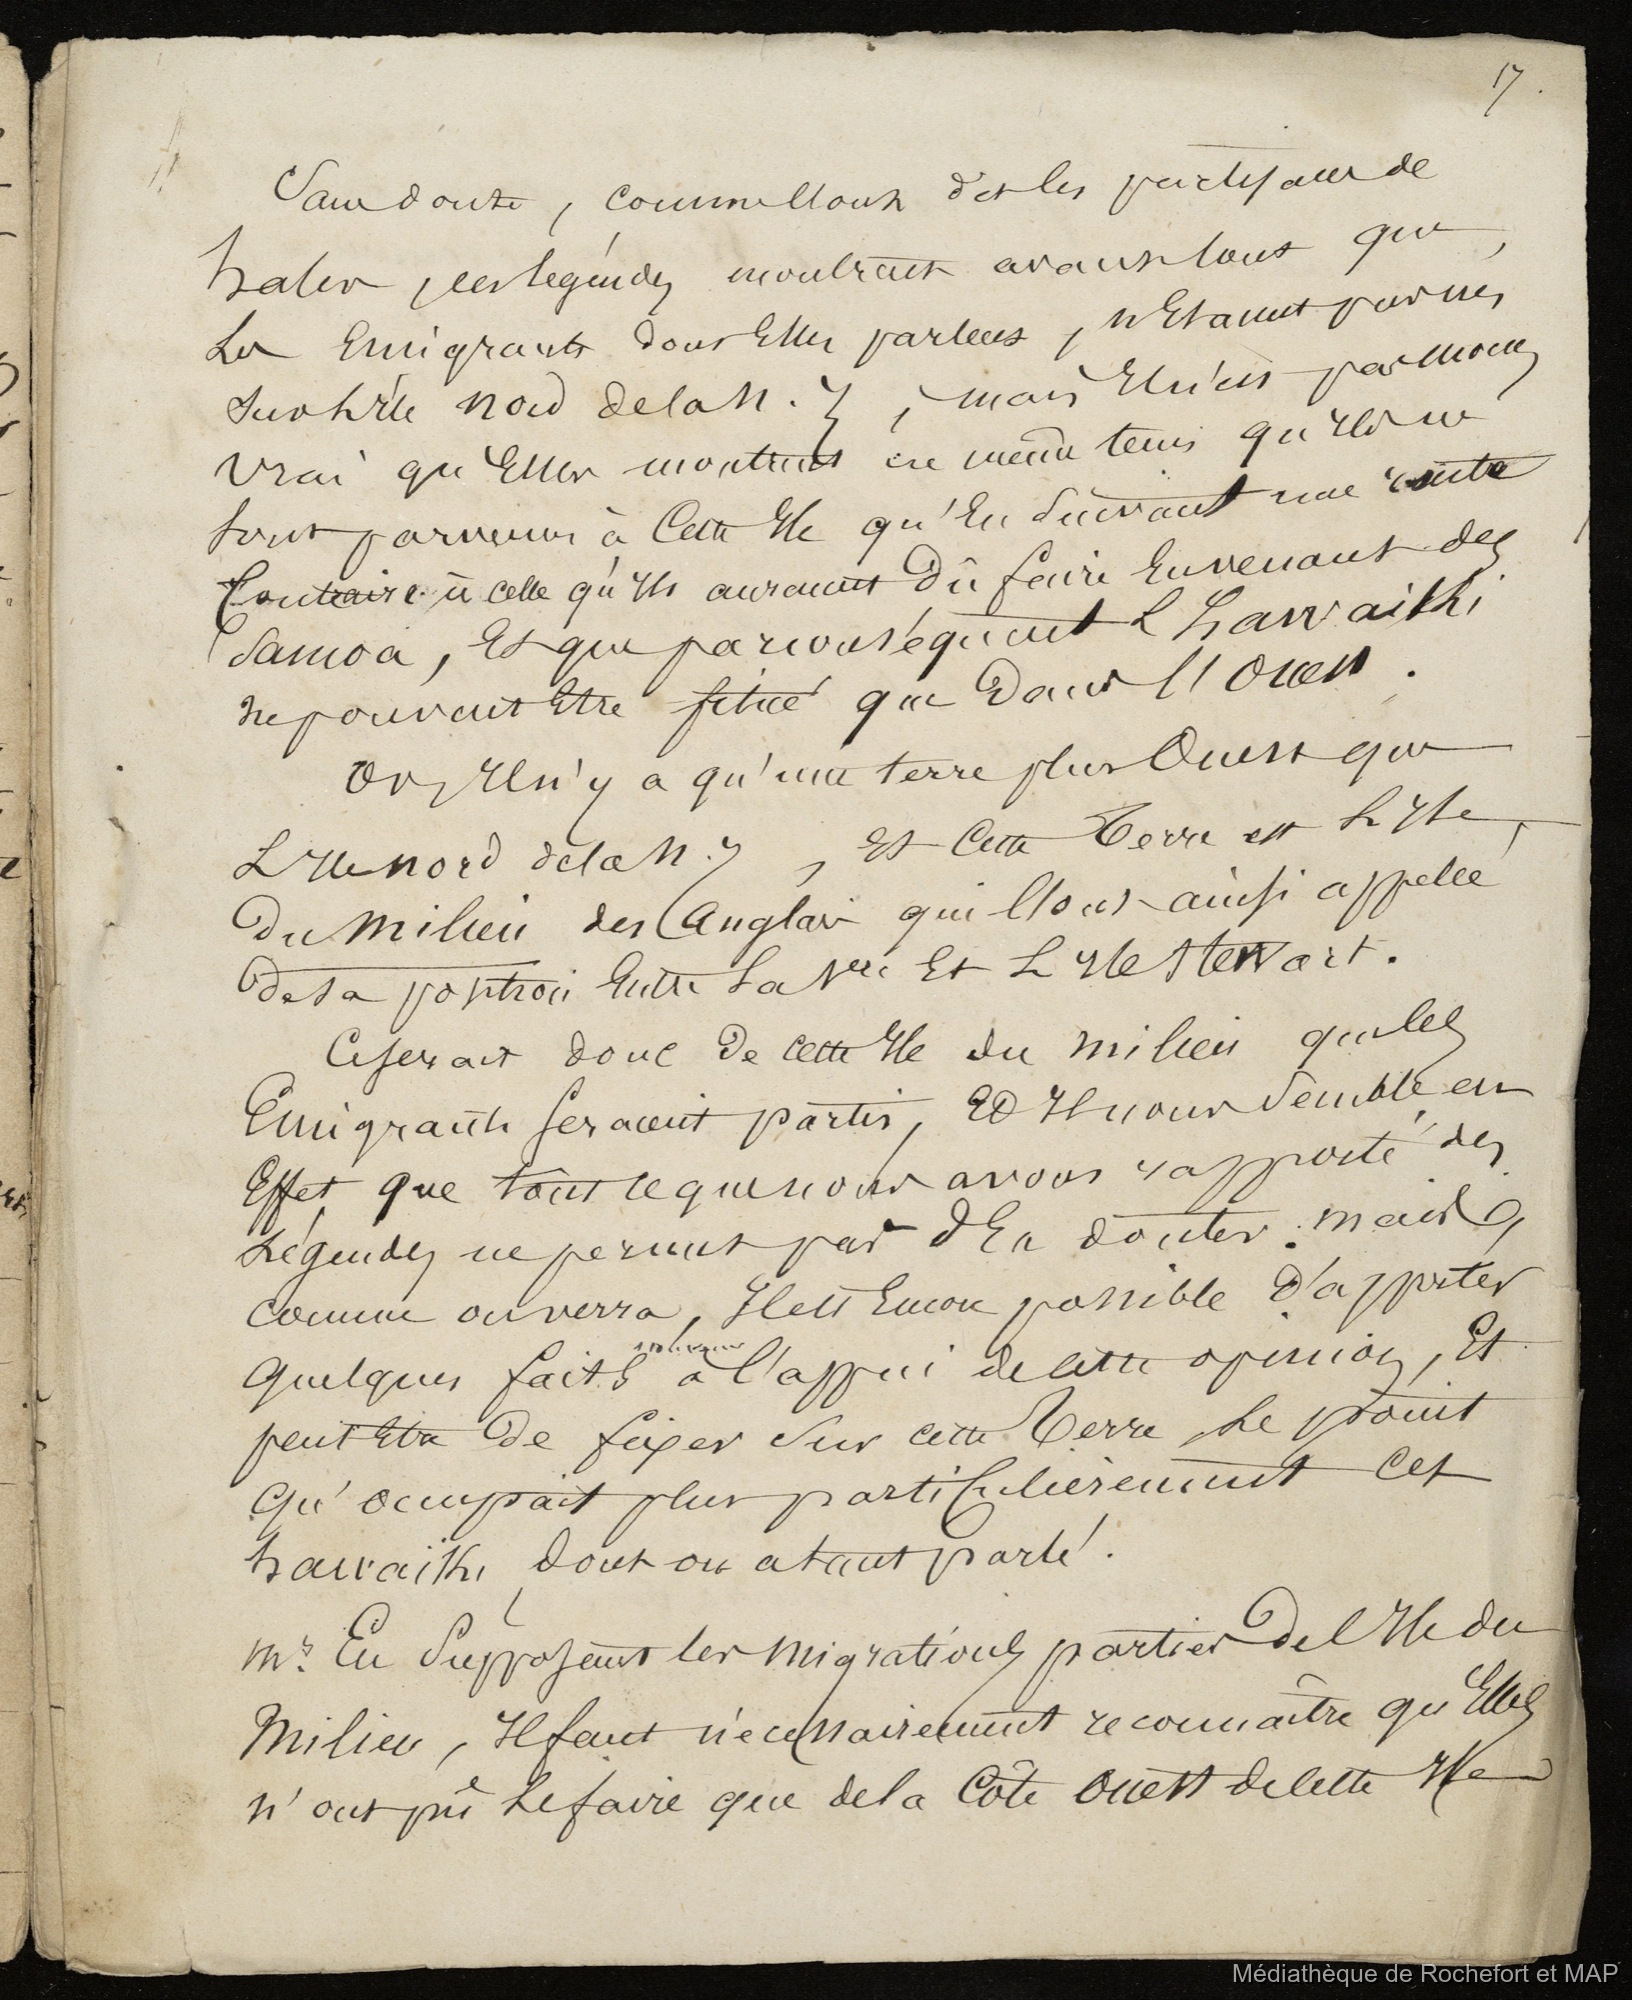 17.
Sans doute, comme l'ont dit les partisans de
hales, les légendes montrent avant tout que
les Emigrants dont Elles parlent, n'Etaient pas nés
sur l'île nord de la N. Z, mais il n'en est pas moins
vrai qu'Elles montrent en même tems qu'ils ne
sont parvenus à Cette Ile qu'En suivant une route
Contraire à celle qu'ils auraient Dû faire En venant des
Samoa, Et que par conséquent L'hawaïki
ne pouvait Etre situé que Dans l'Ouest.
Or, Il n'y a qu'une terre plus Ouest que
L'Ile nord de la N. Z, Et Cette Terre est L'Ile
Du Milieu des Anglais qui l'ont ainsi appelée
De sa position Entre La Nlle Et L'Ile Stewart.
Ce serait donc De cette Ile du milieu que les
Emigrants seraient partis, Et Il nous semble en
Effet que tout ce que nous avons rapporté des
Légendes ne permet pas d'En douter. mais,
comme on verra, Il est Encore possible D'apporter
quelques faits à l'appui de cette opinion, Et
peut Etre De fixer sur cette Terre, le point
qu'occupait plus particulièrement cet
hawaïki dont on a tant parlé.
Mr. En Supposant les Migrations parties De l'Ile du
Milieu, Il faut nécessairement reconnaître qu'Elles
n'ont pû Le faire que de la Côte Ouest de cette Ile
Médiathèque de Rochefort et MAP